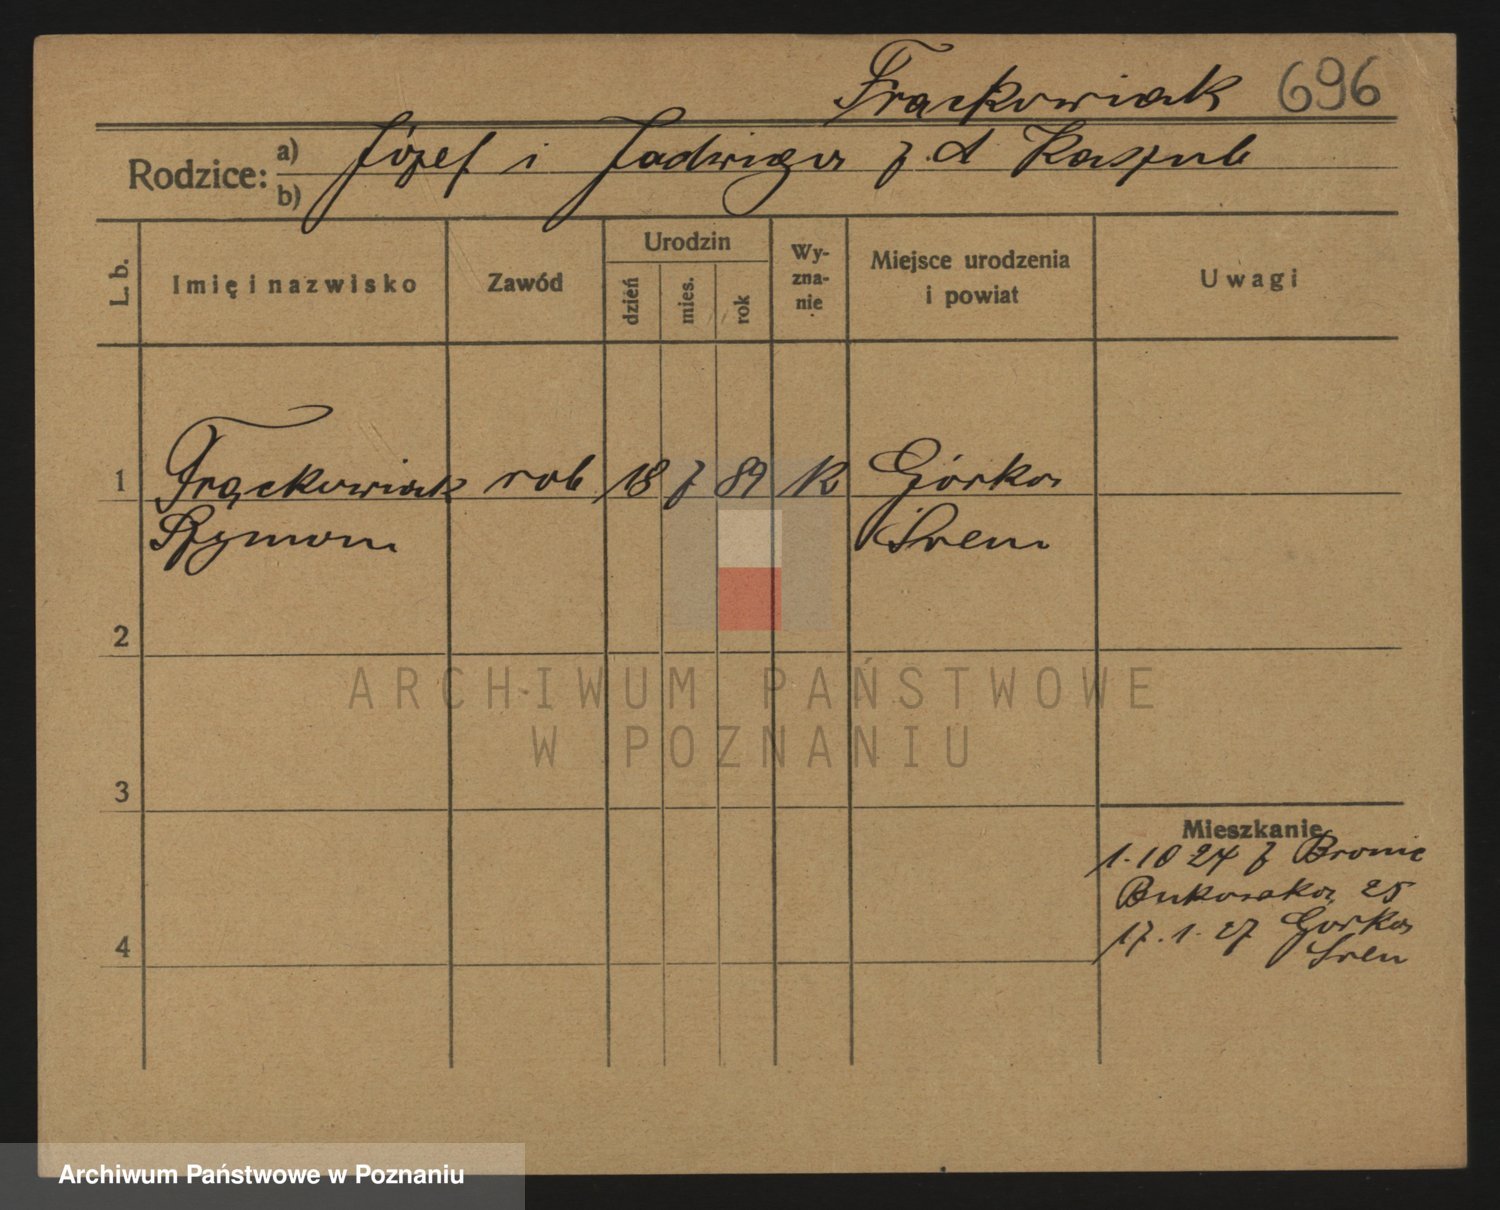 Frąckowiak 696
Rodzice: a) Józef i Jadwiga z d Kaszub
b)
L. b.
Imię i nazwisko
Zawód
Urodzin
dzień
mies.
rok
Wy-
zna-
nie
Miejsce urodzenia
i powiat
Uwagi
1 Frąckowiak rob 18 7 89 K Górka
Szymon Śrem
2
3
4
Mieszkanie
1.10 24 z Bronic
Bukowska 25
17.1.27 Górka
Śrem
ARCHIWUM PAŃSTWOWE
W POZNANIU
Archiwum Państwowe w Poznaniu